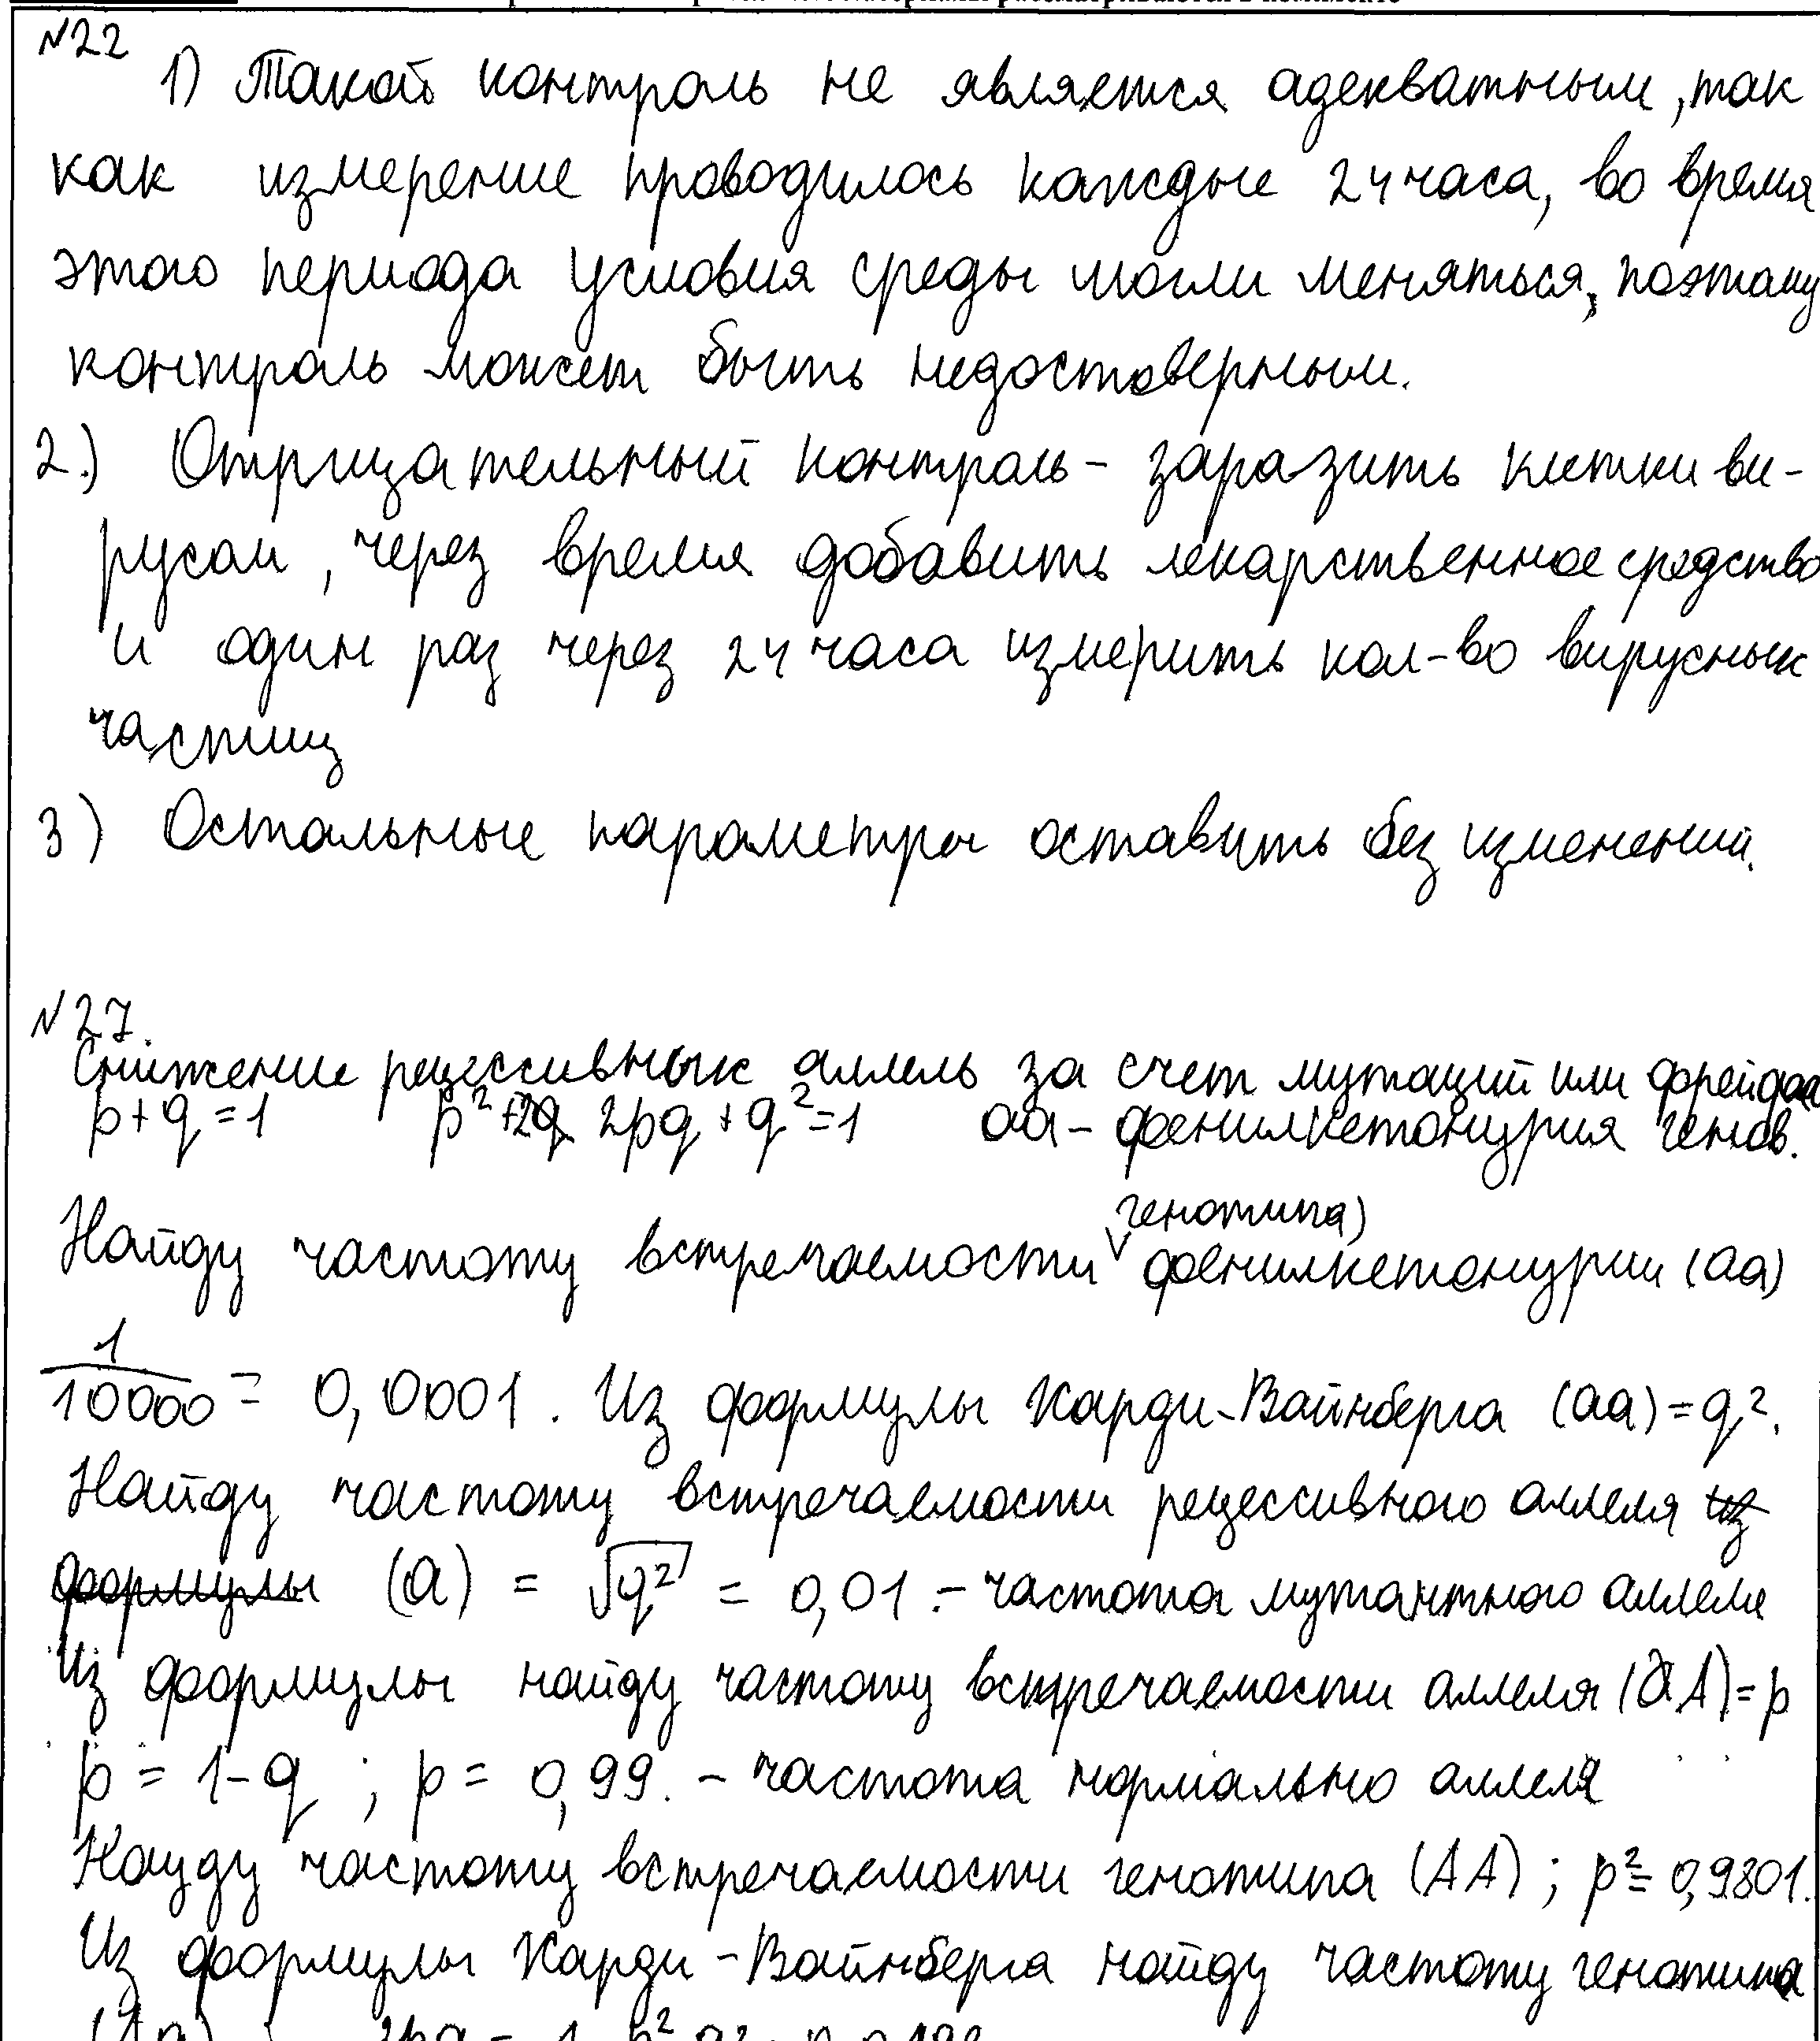 №22
1) Такой контроль не является адекватным, так
как измерение проводилось каждые 24 часа, во время
этого периода условия среды могли меняться, поэтому
контроль может быть недостоверным.
2.) Отрицательный контроль - заразить клетки ви-
русом, через время добавить лекарственное средство
и один раз через 24 часа измерить кол-во вирусных
частиц
3) Остальные параметры оставить без изменений.
№27.
Снижение рецессивных аллель за счет мутаций или дрейфа
p+q=1 p²+2q 2pq+q²=1 аа - фенилкетонурия генов.
генотипа)
Найду частоту встречаемости фенилкетонурии (аа)
1/10000 = 0,0001. Из формулы Харди-Вайнберга (аа)=q².
Найду частоту встречаемости рецессивного аллеля из
формулы (а) = √q² = 0,01 - частота мутантного аллеля
Из формулы найду частоту встречаемости аллеля (А)=p
p = 1-q ; p = 0,99. - частота нормально аллеля
Найду частоту встречаемости генотипа (АА) ; p²= 0,9801.
Из формулы Харди-Вайнберга найду частоту генотипа